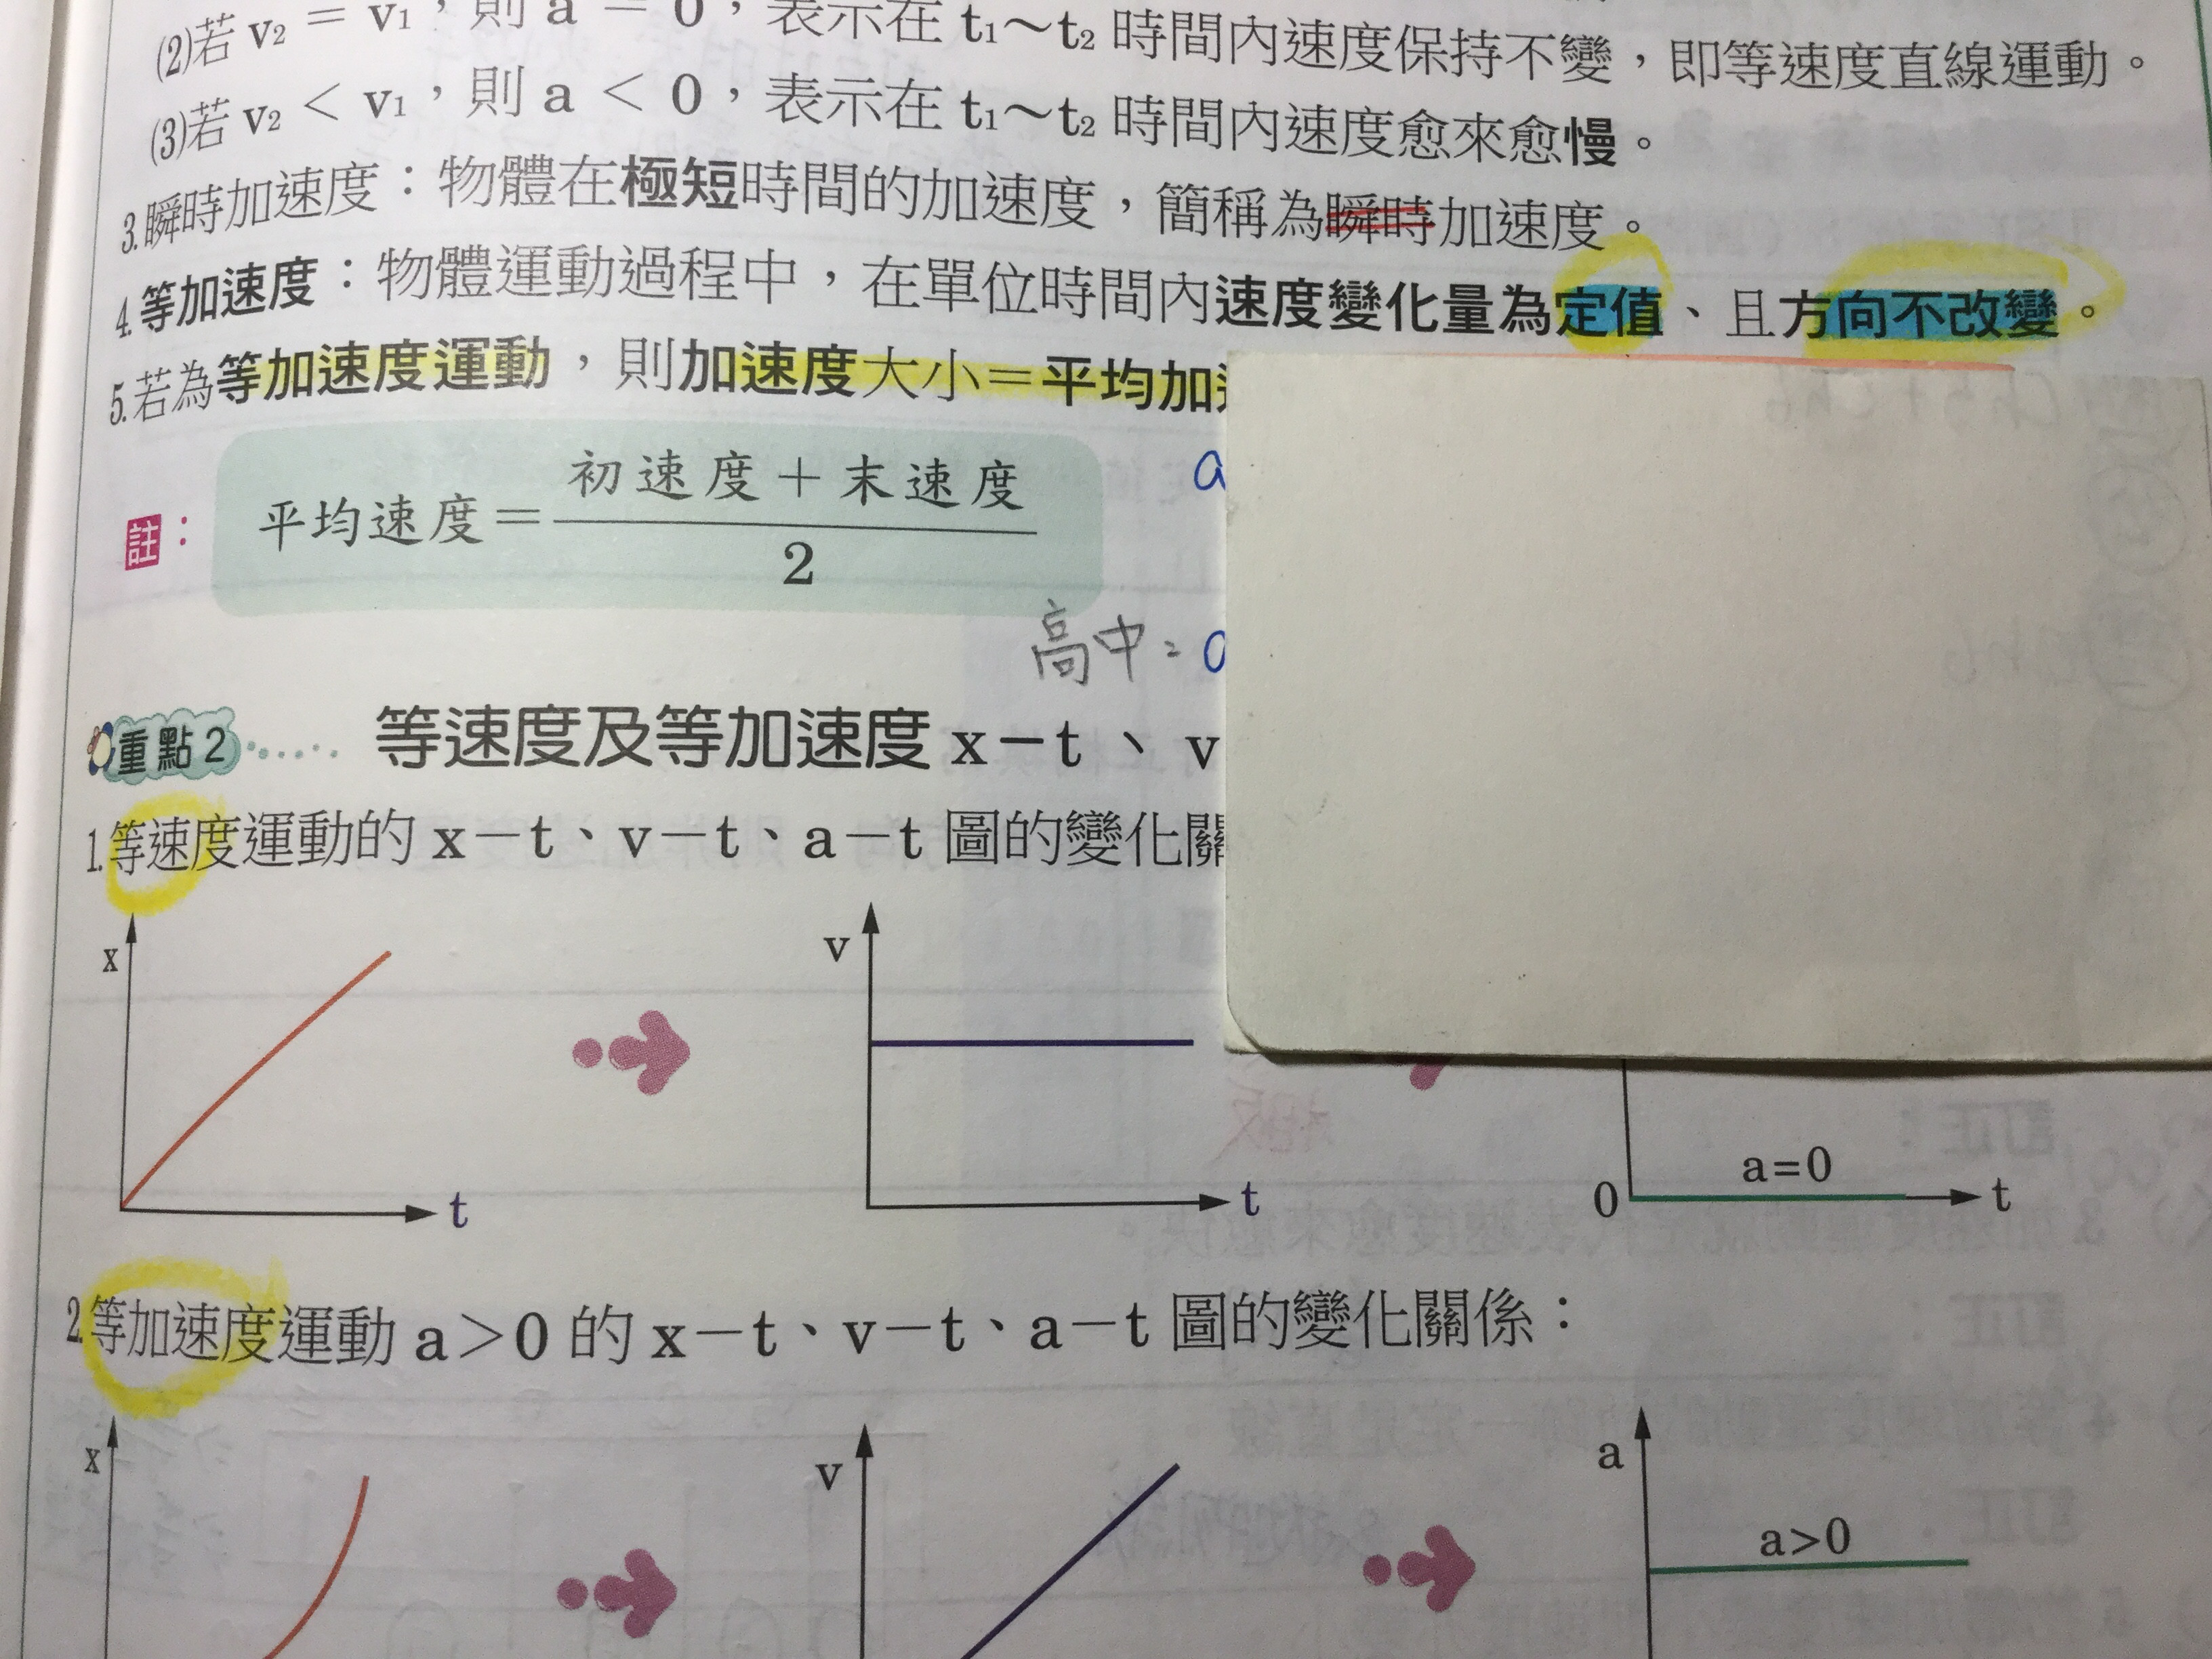 (2)若 v₂ = v₁，則 a = 0，表示在 t₁～t₂ 時間內速度保持不變，即等速度直線運動。
(3)若 v₂ < v₁，則 a < 0，表示在 t₁～t₂ 時間內速度愈來愈慢。
3.瞬時加速度：物體在極短時間的加速度，簡稱為瞬時加速度。
4.等加速度：物體運動過程中，在單位時間內速度變化量為定值、且方向不改變。
5.若為等加速度運動，則加速度大小＝平均加
註：
平均速度＝初速度＋末速度
2
a
高中：a
重點2…… 等速度及等加速度 x－t、v
1.等速度運動的 x－t、v－t、a－t 圖的變化關
x
t
v
t
0
a=0
t
2.等加速度運動 a＞0 的 x－t、v－t、a－t 圖的變化關係：
x
v
a
a>0